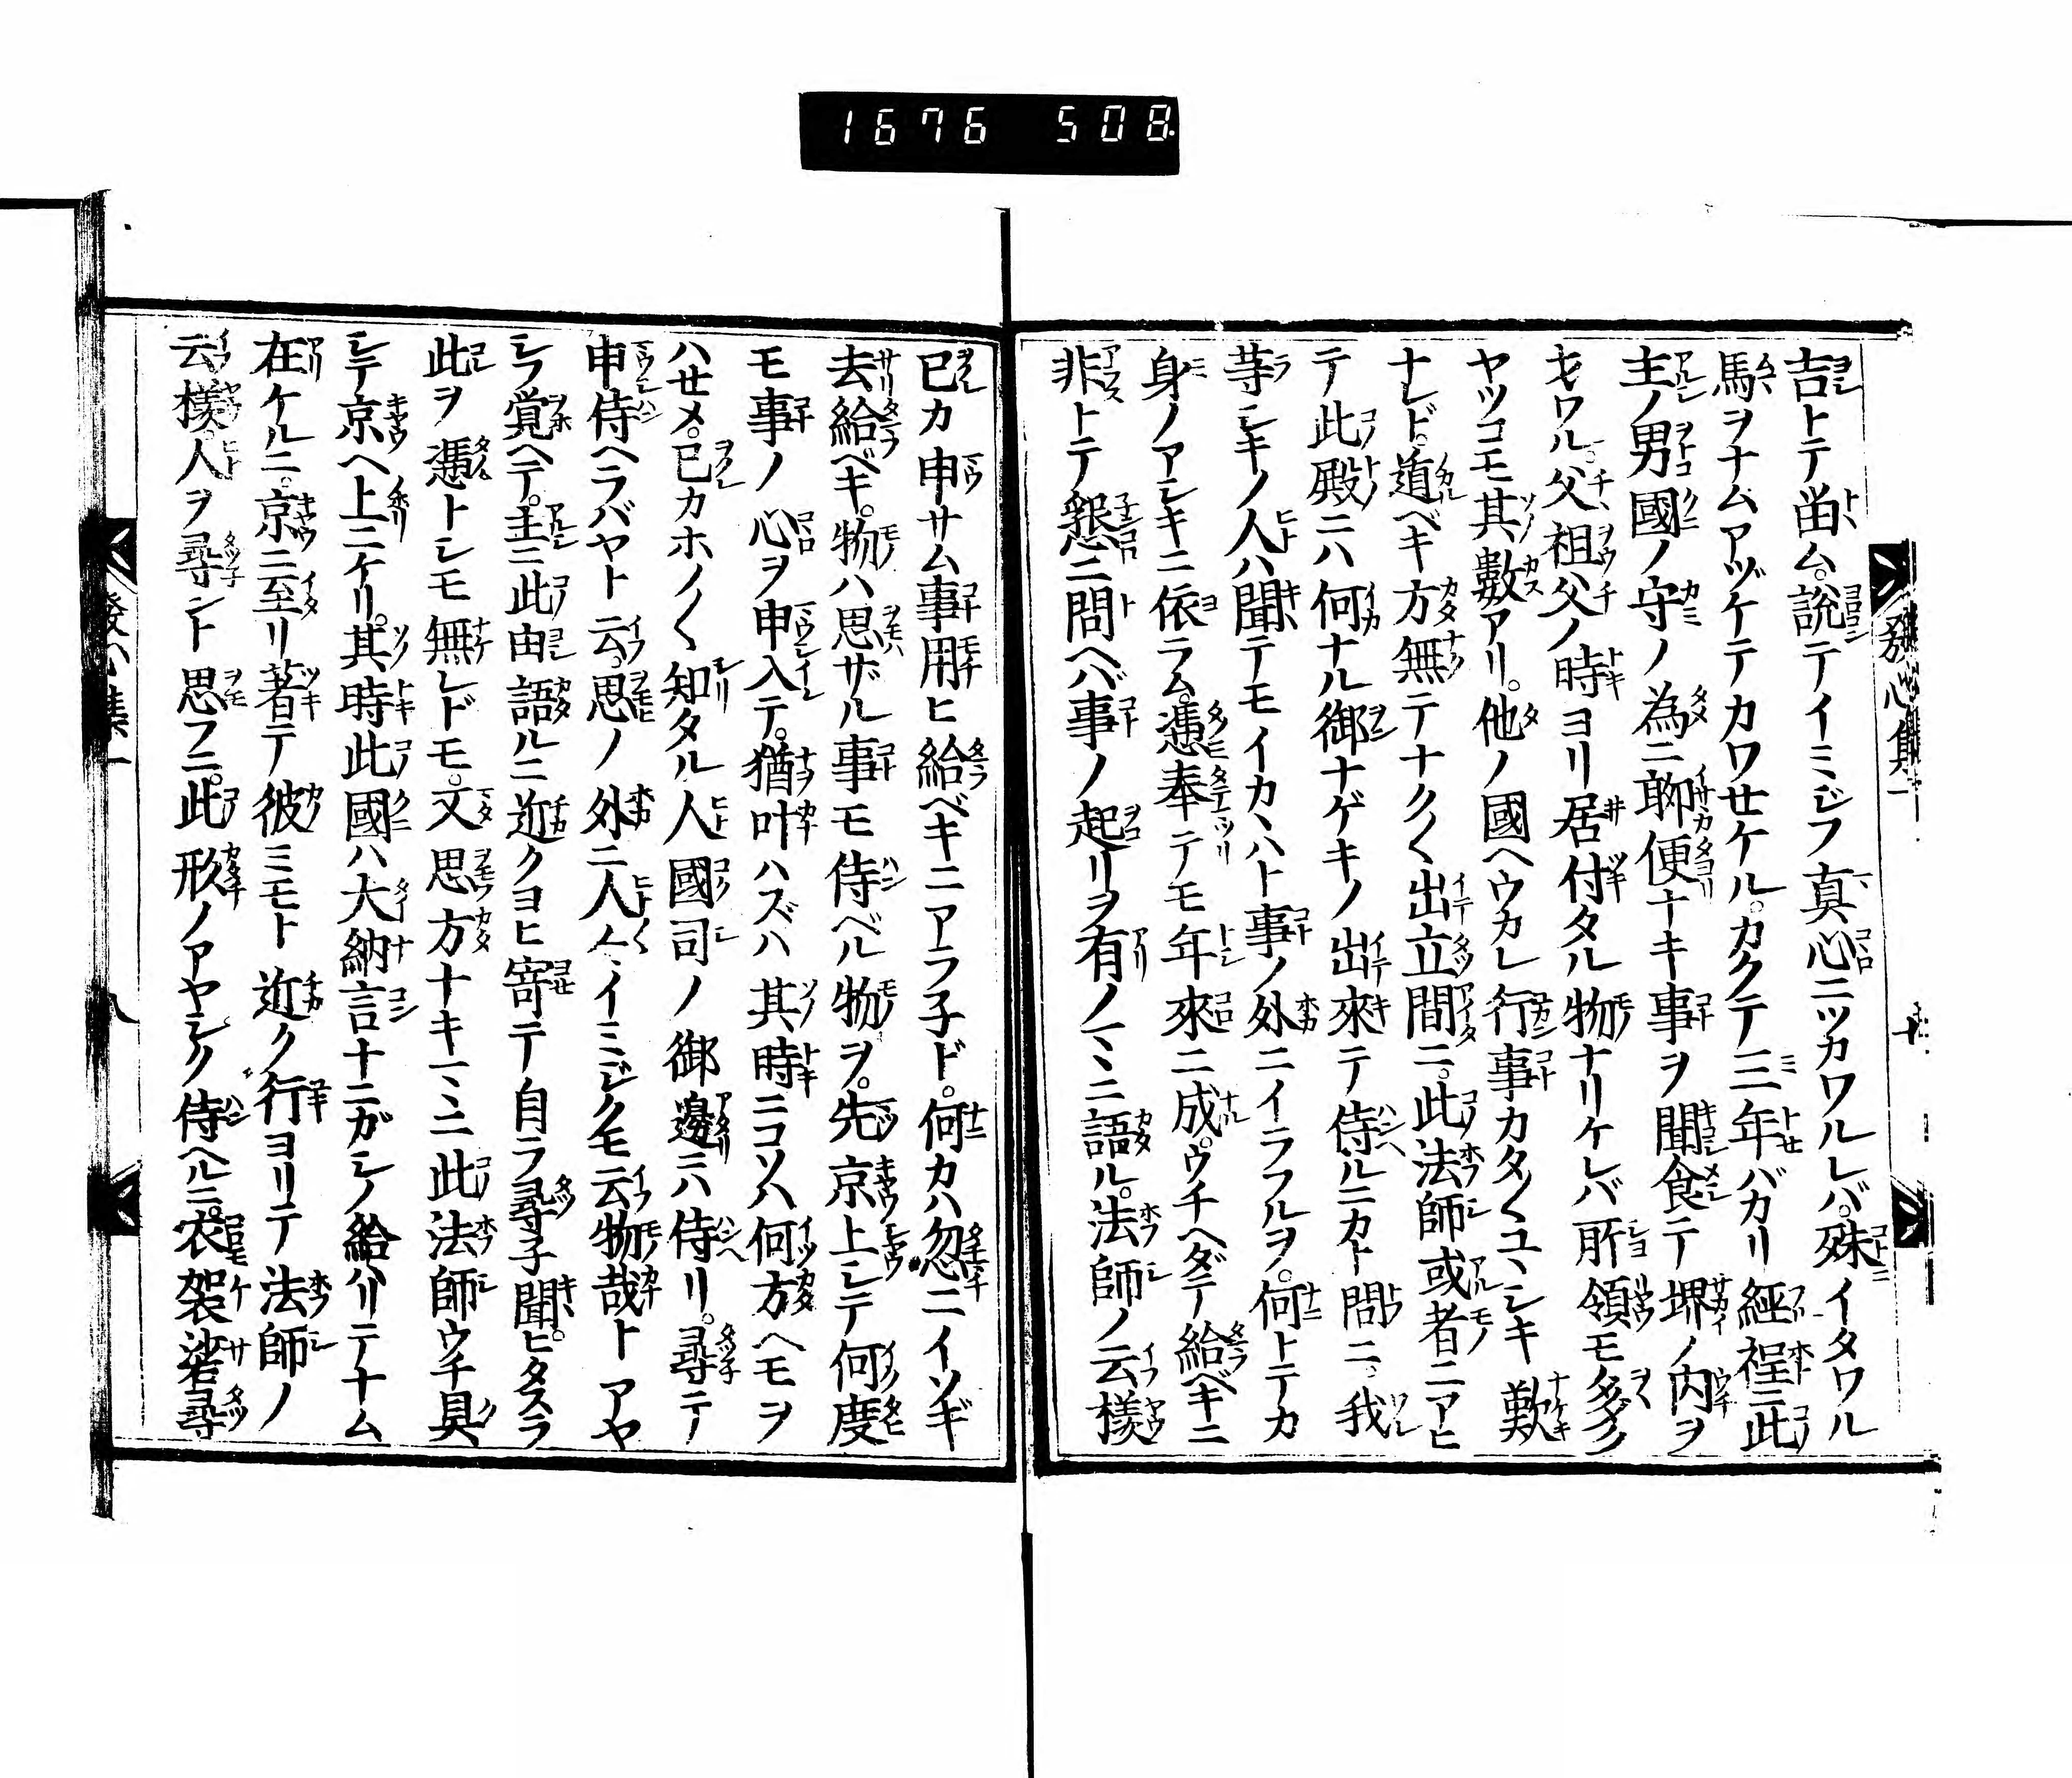 1676 508
發心集一
吉トテ畄ム。説テイミジフ真心ニツカワルレバ。殊イタワル
馬ヲナムアヅケテカワセケル。カクテ三年バカリ經程ニ此
主ノ男國ノ守ノ為ニ聊便ナキ事ヲ聞食テ堺ノ内ヲ
セワル。父祖父ノ時ヨリ居付タル物ナリケレバ所領モ多ク
ヤツコモ其數アリ。他ノ國ヘウカレ行事カタ〱ユヽシキ歎
ナレド。遁ベキ方無テナク〱出立間ニ。此法師或者ニアヒ
テ此殿ニハ何ナル御ナゲキノ出來テ侍ルニカト問ニ。我
等シキノ人ハ聞テモイカヽハト事ノ外ニイラフルヲ。何トテカ
身ノアシキニ依ラム。憑奉テモ年來ニ成。ウチヘダテ給ベキニ
非トテ懇ニ問ヘバ事ノ起リヲ有ノマヽニ語ル。法師ノ云樣
已カ申サム事用ヒ給ベキニアラ子ド。何カハ忽ニイソギ
去給ベキ。物ハ思ザル事モ侍ベル物ヲ。先京上シテ何度
モ事ノ心ヲ申入テ。猶叶ハズハ其時ニコソハ何方ヘモヲ
ハセメ。已カホノ〱知タル人國司ノ御邊ニハ侍リ。尋テ
申侍ヘラバヤト云。思ノ外ニ人〱イミジクモ云物哉トアヤ
シフ覚ヘテ。主ニ此由語ルニ近クヨヒ寄テ自ラ尋子聞。ヒタスラ
此ヲ憑トシモ無レドモ。又思方ナキマヽニ此法師ウチ具
シテ京ヘ上ニケリ。其時此國ハ大納言ナニガシノ給ハリテナム
在ケルニ。京ニ至リ著テ彼ミモト近ク行ヨリテ法師ノ
云樣。人ヲ尋ント思フニ。此形ノアヤシク侍ヘルニ。衣袈裟尋
發心集一
八